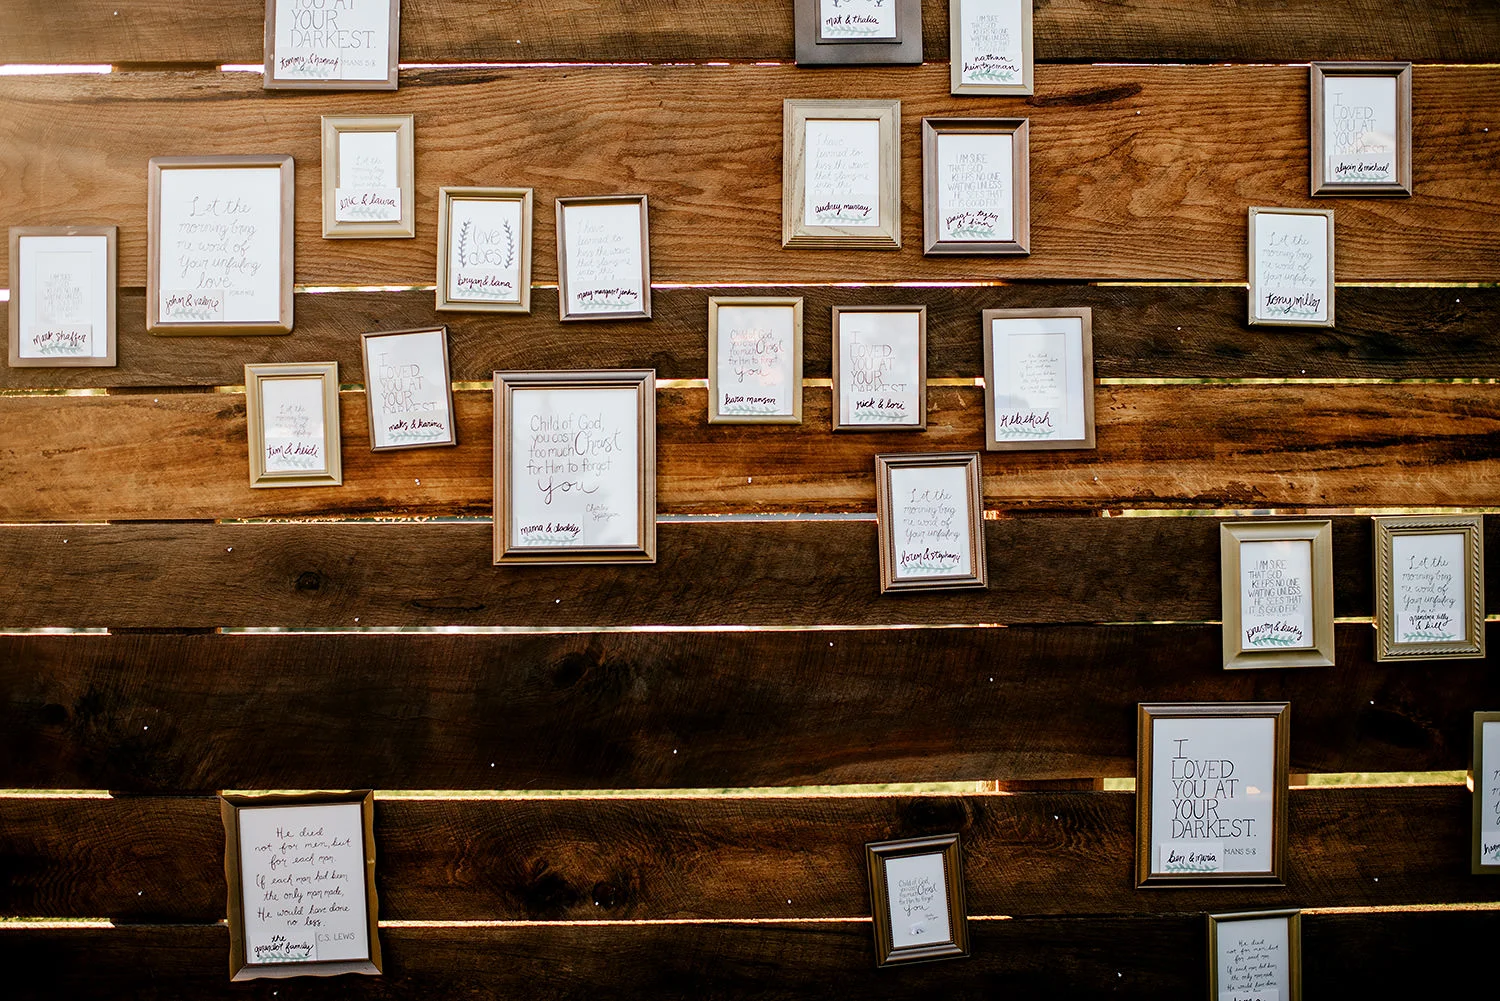 YOU AT
YOUR
DARKEST.
tommy & hannah
MANS 5:8
mat & thalia
I AM SURE
THAT GOD
KEEPS NO ONE
WAITING UNLESS
nathan
heintzeman
I
LOVED
YOU AT
YOUR
DARKEST.
alyain & michael
Let the
eric & laura
I have
learned to
kiss the wave
that slung me
into the
audrey murray
I AM SURE
THAT GOD
KEEPS NO ONE
WAITING UNLESS
HE SEES THAT
IT IS GOOD FOR
paige, tyler
& finn
Let the
morning bring
me word of
Your unfailing
love.
john & valerie
love
does
bryan & lana
I have
learned to
kiss the wave
that slung me
into the
mary margaret jenkins
Let the
morning bring
me word of
Your unfailing
tony miller
I AM SURE
THAT GOD
KEEPS NO ONE
WAITING UNLESS
mark shaffer
Child of God,
you cost Christ
too much
for Him to forget
You
kara manson
I
LOVED
YOU AT
YOUR
DARKEST
nick & lori
rebekah
I
LOVED
YOU AT
YOUR
DARKEST
maks & karina
Let the
morning bring
me word of
Your unfailing
tim & heidi
Child of God,
you cost Christ
too much
for Him to forget
You
Charles
Spurgeon
mama & daddy
Let the
morning bring
me word of
Your unfailing
loren & stephanie
I AM SURE
THAT GOD
KEEPS NO ONE
WAITING UNLESS
HE SEES THAT
IT IS GOOD FOR
preston & becky
Let the
morning bring
me word of
Your unfailing
grandma billy
& bill
I
LOVED
YOU AT
YOUR
DARKEST.
ben & maria
MANS 5:8
He died
not for men, but
for each man.
If each man had been
the only man made,
He would have done
no less.
C.S. LEWIS
the
family
Child of God,
you cost Christ
too much
for Him to forget
You
He died
not for men, but
for each man.
If each man had been
the only man made,
He would have done